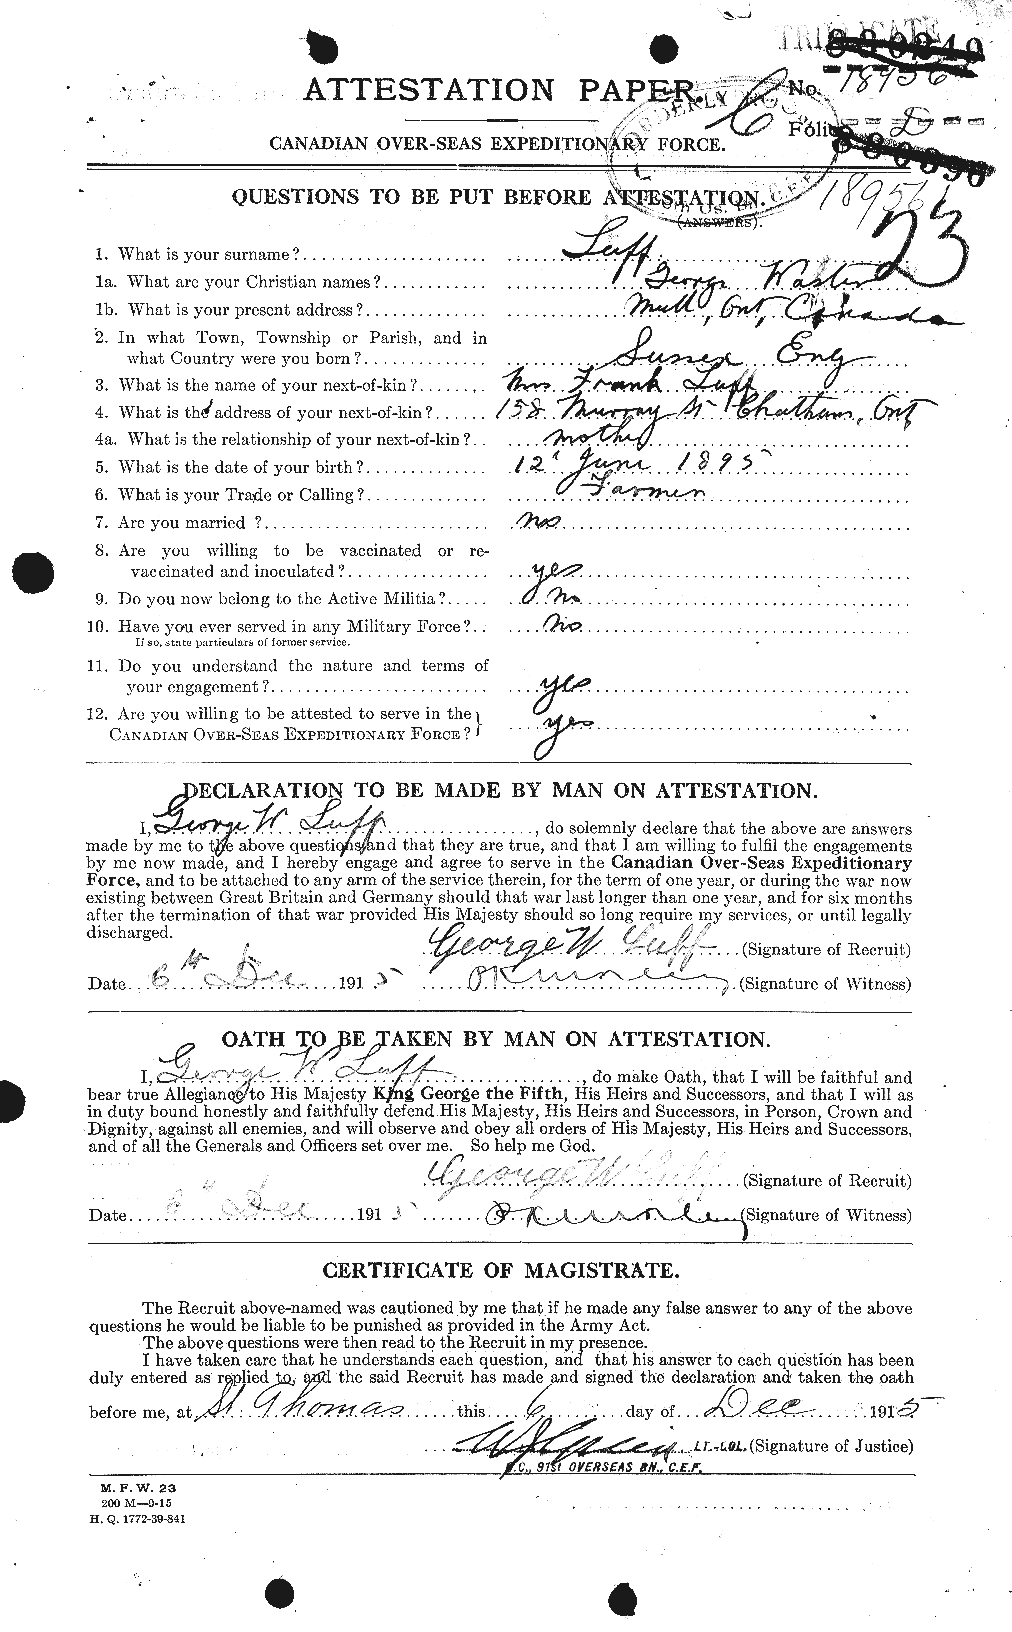 TRIPLICATE
ATTESTATION PAPER.
No. 189561
Folio D
CANADIAN OVER-SEAS EXPEDITIONARY FORCE.
ORDERLY ROOM
189561
QUESTIONS TO BE PUT BEFORE ATTESTATION.
(ANSWERS).
23
1. What is your surname? Luff
1a. What are your Christian names? George Walter
1b. What is your present address? Mull, Ont, Canada
2. In what Town, Township or Parish, and in
what Country were you born? Sussex Eng
3. What is the name of your next-of-kin? Mrs Frank Luff
4. What is the address of your next-of-kin? 158 Murray St Chatham, Ont
4a. What is the relationship of your next-of-kin? mother
5. What is the date of your birth? 12 June 1895
6. What is your Trade or Calling? Farmer
7. Are you married? no
8. Are you willing to be vaccinated or re-
vaccinated and inoculated? yes
9. Do you now belong to the Active Militia? No
10. Have you ever served in any Military Force? No
If so, state particulars of former service.
11. Do you understand the nature and terms of
your engagement? yes
12. Are you willing to be attested to serve in the
CANADIAN OVER-SEAS EXPEDITIONARY FORCE? yes
DECLARATION TO BE MADE BY MAN ON ATTESTATION.
I, George W Luff, do solemnly declare that the above are answers
made by me to the above questions and that they are true, and that I am willing to fulfil the engagements
by me now made, and I hereby engage and agree to serve in the Canadian Over-Seas Expeditionary
Force, and to be attached to any arm of the service therein, for the term of one year, or during the war now
existing between Great Britain and Germany should that war last longer than one year, and for six months
after the termination of that war provided His Majesty should so long require my services, or until legally
discharged.
George W Luff (Signature of Recruit)
Date 6th Dec 1915 (Signature of Witness)
OATH TO BE TAKEN BY MAN ON ATTESTATION.
I, George W Luff, do make Oath, that I will be faithful and
bear true Allegiance to His Majesty King George the Fifth, His Heirs and Successors, and that I will as
in duty bound honestly and faithfully defend His Majesty, His Heirs and Successors, in Person, Crown and
Dignity, against all enemies, and will observe and obey all orders of His Majesty, His Heirs and Successors,
and of all the Generals and Officers set over me. So help me God.
George W Luff (Signature of Recruit)
Date 6th Dec 1915 (Signature of Witness)
CERTIFICATE OF MAGISTRATE.
The Recruit above-named was cautioned by me that if he made any false answer to any of the above
questions he would be liable to be punished as provided in the Army Act.
The above questions were then read to the Recruit in my presence.
I have taken care that he understands each question, and that his answer to each question has been
duly entered as replied to, and the said Recruit has made and signed the declaration and taken the oath
before me, at St. Thomas this 6 day of Dec 1915
LT.-COL. (Signature of Justice)
O.C., 91st OVERSEAS BN., C.E.F.
M. F. W. 23
200 M—9-15
H. Q. 1772-39-841